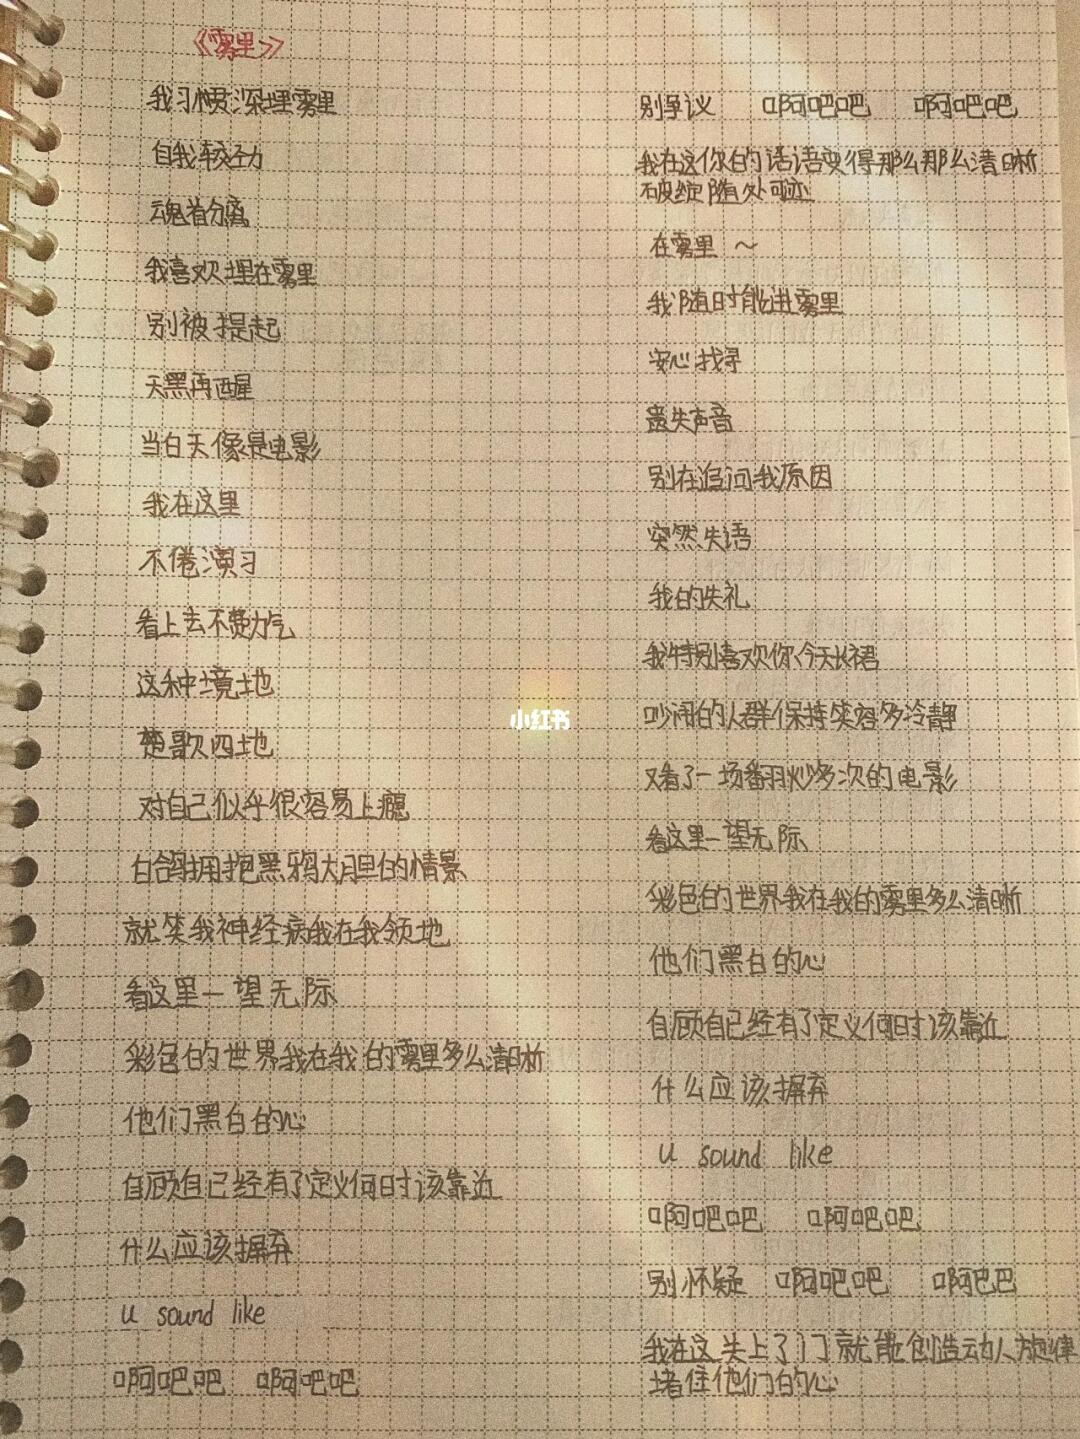 《雾里》
我习惯深埋雾里
自我较劲
魂首分离
我喜欢埋在雾里
别被提起
天黑再西醒
当白天像是电影
我在这里
不倦演习
看上去不费力气
这种境地
楚歌四地
对自己似乎很容易上瘾
白鸽拥抱黑鸦大胆的情景
就笑我神经病我在我领地
看这里一望无际
彩色的世界我在我的雾里多么清晰
他们黑白的心
自顾自己经有了定义何时该靠近
什么应该摒弃
u sound like
啊吧吧 啊吧吧
别争议 啊吧吧 啊吧吧
我在这你的话语变得那么那么清晰
破绽随处可迹
在雾里～
我随时能进雾里
安心找寻
遗失声音
别在追问我原因
突然失语
我的失礼
我特别喜欢你今天长裙
吵闹的人群保持笑容多冷静
又看了一场翻炒多次的电影
看这里一望无际
彩色的世界我在我的雾里多么清晰
他们黑白的心
自顾自已经有了定义何时该靠近
什么应该摒弃
u sound like
啊吧吧 啊吧吧
别怀疑 啊吧吧 啊巴巴
我在这关上了门就能创造动人旋律
堵住他们的心
小红书